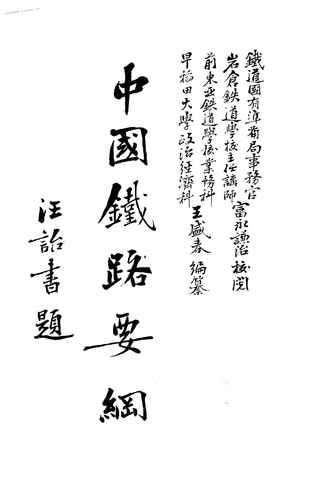 鐵道國有準備局事務官
岩倉鉄道學校主任講師
富永謙治 校閲
前東亞鉄道學校業務科
早稲田大學政治經濟科
王盛春 編纂
中國鐵路要綱
汪詒書題